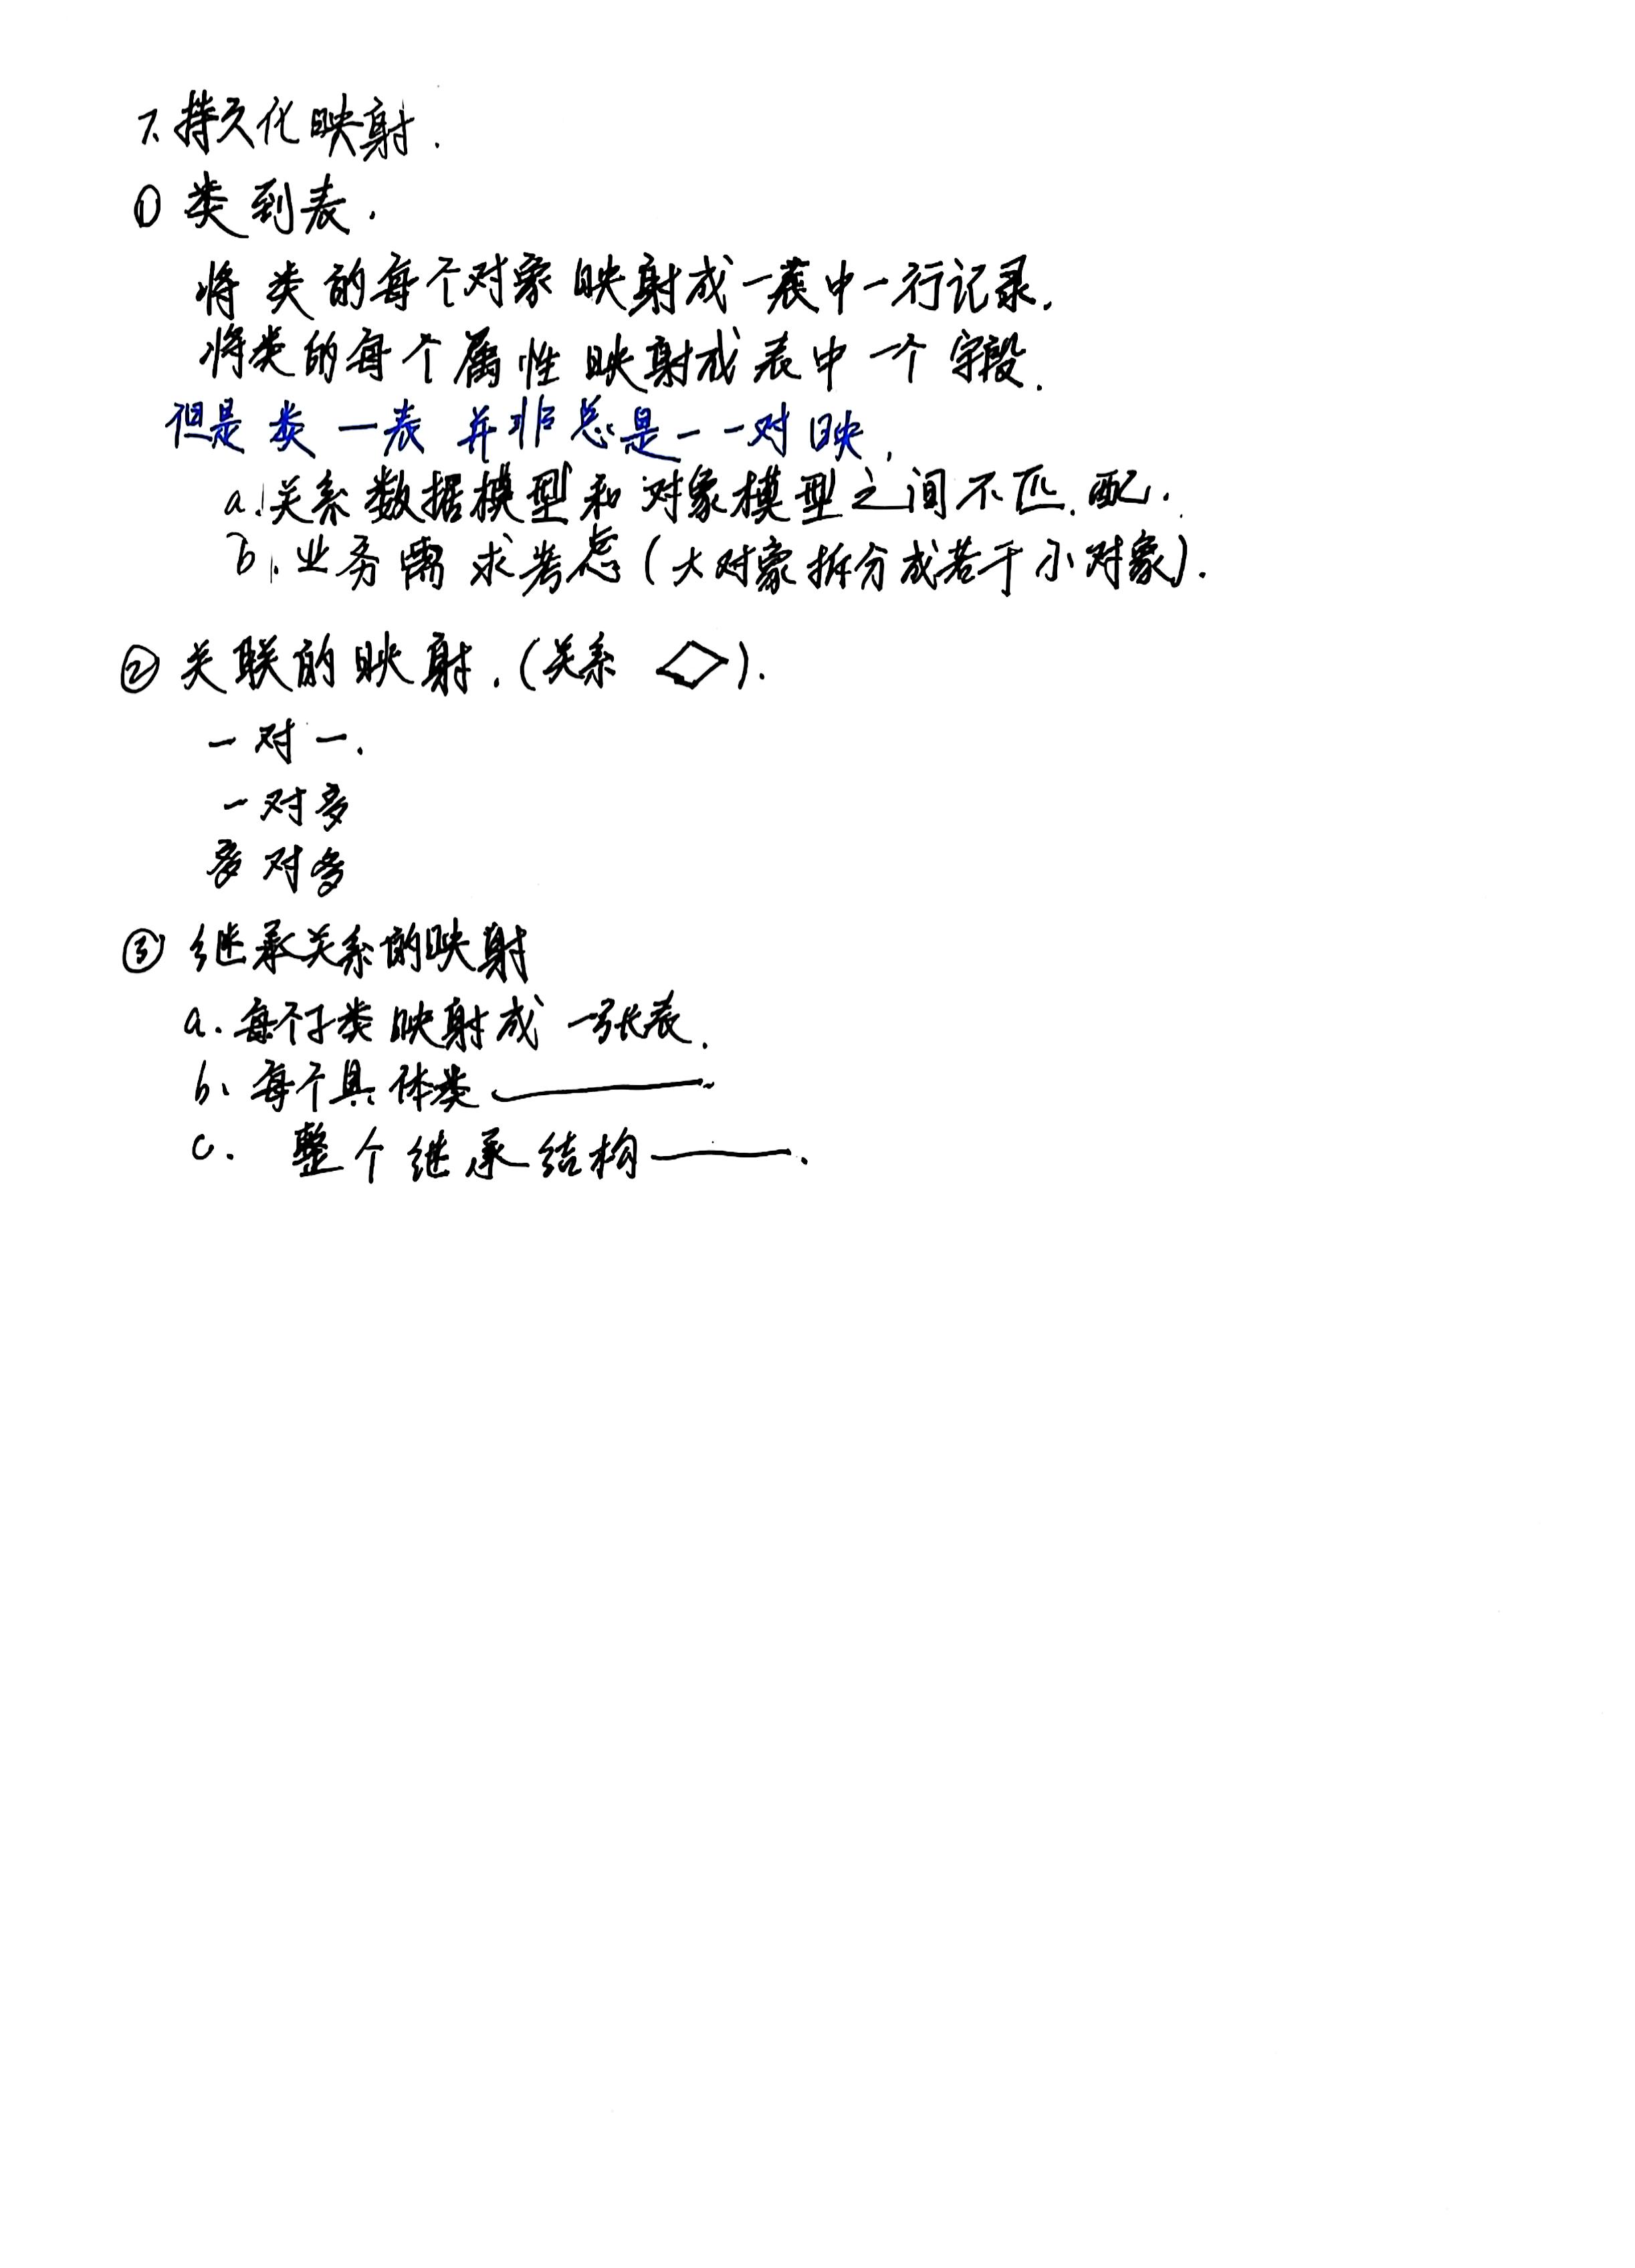 7.持久化映射.
① 类到表.
将类的每个对象映射成一表中一行记录.
将类的每个属性映射成表中一个字段.
但是类一表并非总是一一对映.
a.关系数据模型和对象模型之间不匹配.
b.业务需求考虑(大对象拆分成若干小对象).
② 关联的映射.(关系 ).
一对一.
一对多
多对多
③ 继承关系的映射
a.每个子类映射成一张表.
b.每个具体类——.
c. 整个继承结构——.